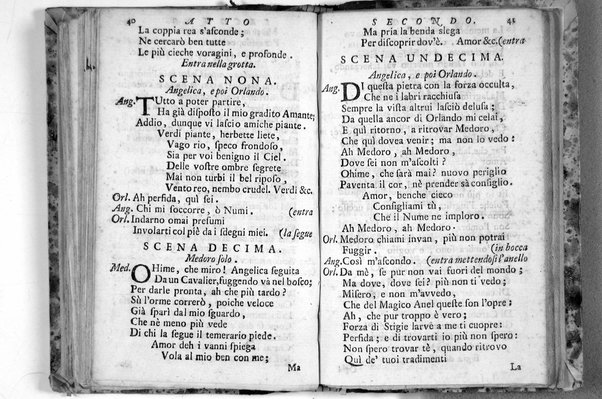 40 ATTO
La coppia rea s'asconde;
Ne cercarò ben tutte
Le più cieche voragini, e profonde.
Entra nella grotta.
SCENA NONA.
Angelica, e poi Orlando.
Ang. Tutto a poter partire,
Ha già disposto il mio gradito Amante;
Addio, dunque vi lascio amiche piante.
Verdi piante, herbette liete,
Vago rio, speco frondoso,
Sia per voi benigno il Ciel.
Delle vostre ombre segrete
Mai non turbi il bel riposo,
Vento reo, nembo crudel. Verdi &c.
Orl. Ah perfida, quì sei.
Ang. Chi mi soccorre, ò Numi. (entra
Orl. Indarno omai presumi
Involarti col piè da i sdegni miei. (la segue
SCENA DECIMA.
Medoro solo.
Med. OHime, che miro! Angelica seguita
Da un Cavalier, fuggendo và nel bosco;
Per darle pronta, ah che più tardo?
Sù l'orme correrò, poiche veloce
Già sparì dal mio sguardo,
Che nè meno più vede
Di chi la segue il temerario piede.
Amor deh i vanni spiega
Vola al mio ben con me;
Ma
SECONDO. 41
Ma pria la benda slega
Per discoprir dov'è. Amor &c. (entra
SCENA UNDECIMA.
Angelica, e poi Orlando.
Ang. DI questa pietra con la forza occulta,
Che ne i labri racchiusa
Sempre la vista altrui lasciò delusa;
Da quella ancor di Orlando mi celai,
E quì ritorno, a ritrovar Medoro,
Che quì dovea venir; ma non lo vedo:
Ah Medoro, ah Medoro,
Dove sei non m'ascolti?
Ohime, che sarà mai? nuovo periglio
Paventa il cor, nè prender sà consiglio.
Amor, benche cieco
Consigliami tù,
Che il Nume ne imploro.
Ah Medoro, ah Medoro.
Orl. Medoro chiami invan, più non potrai
Fuggir. (in bocca
Ang. Così m'ascondo. (entra mettendosi l'anello
Orl. Da mè, se pur non vai fuori del mondo;
Ma dove, dove sei? più non ti vedo;
Misero, e non m'avvedo,
Che del Magico Anel queste son l'opre:
Ah, che pur troppo è vero;
Forza di Stigie larve a me ti cuopre:
Perfida; e di trovarti io più non spero:
Non spero trovar tè, quando ritrovo
Quì de' tuoi tradimenti
La